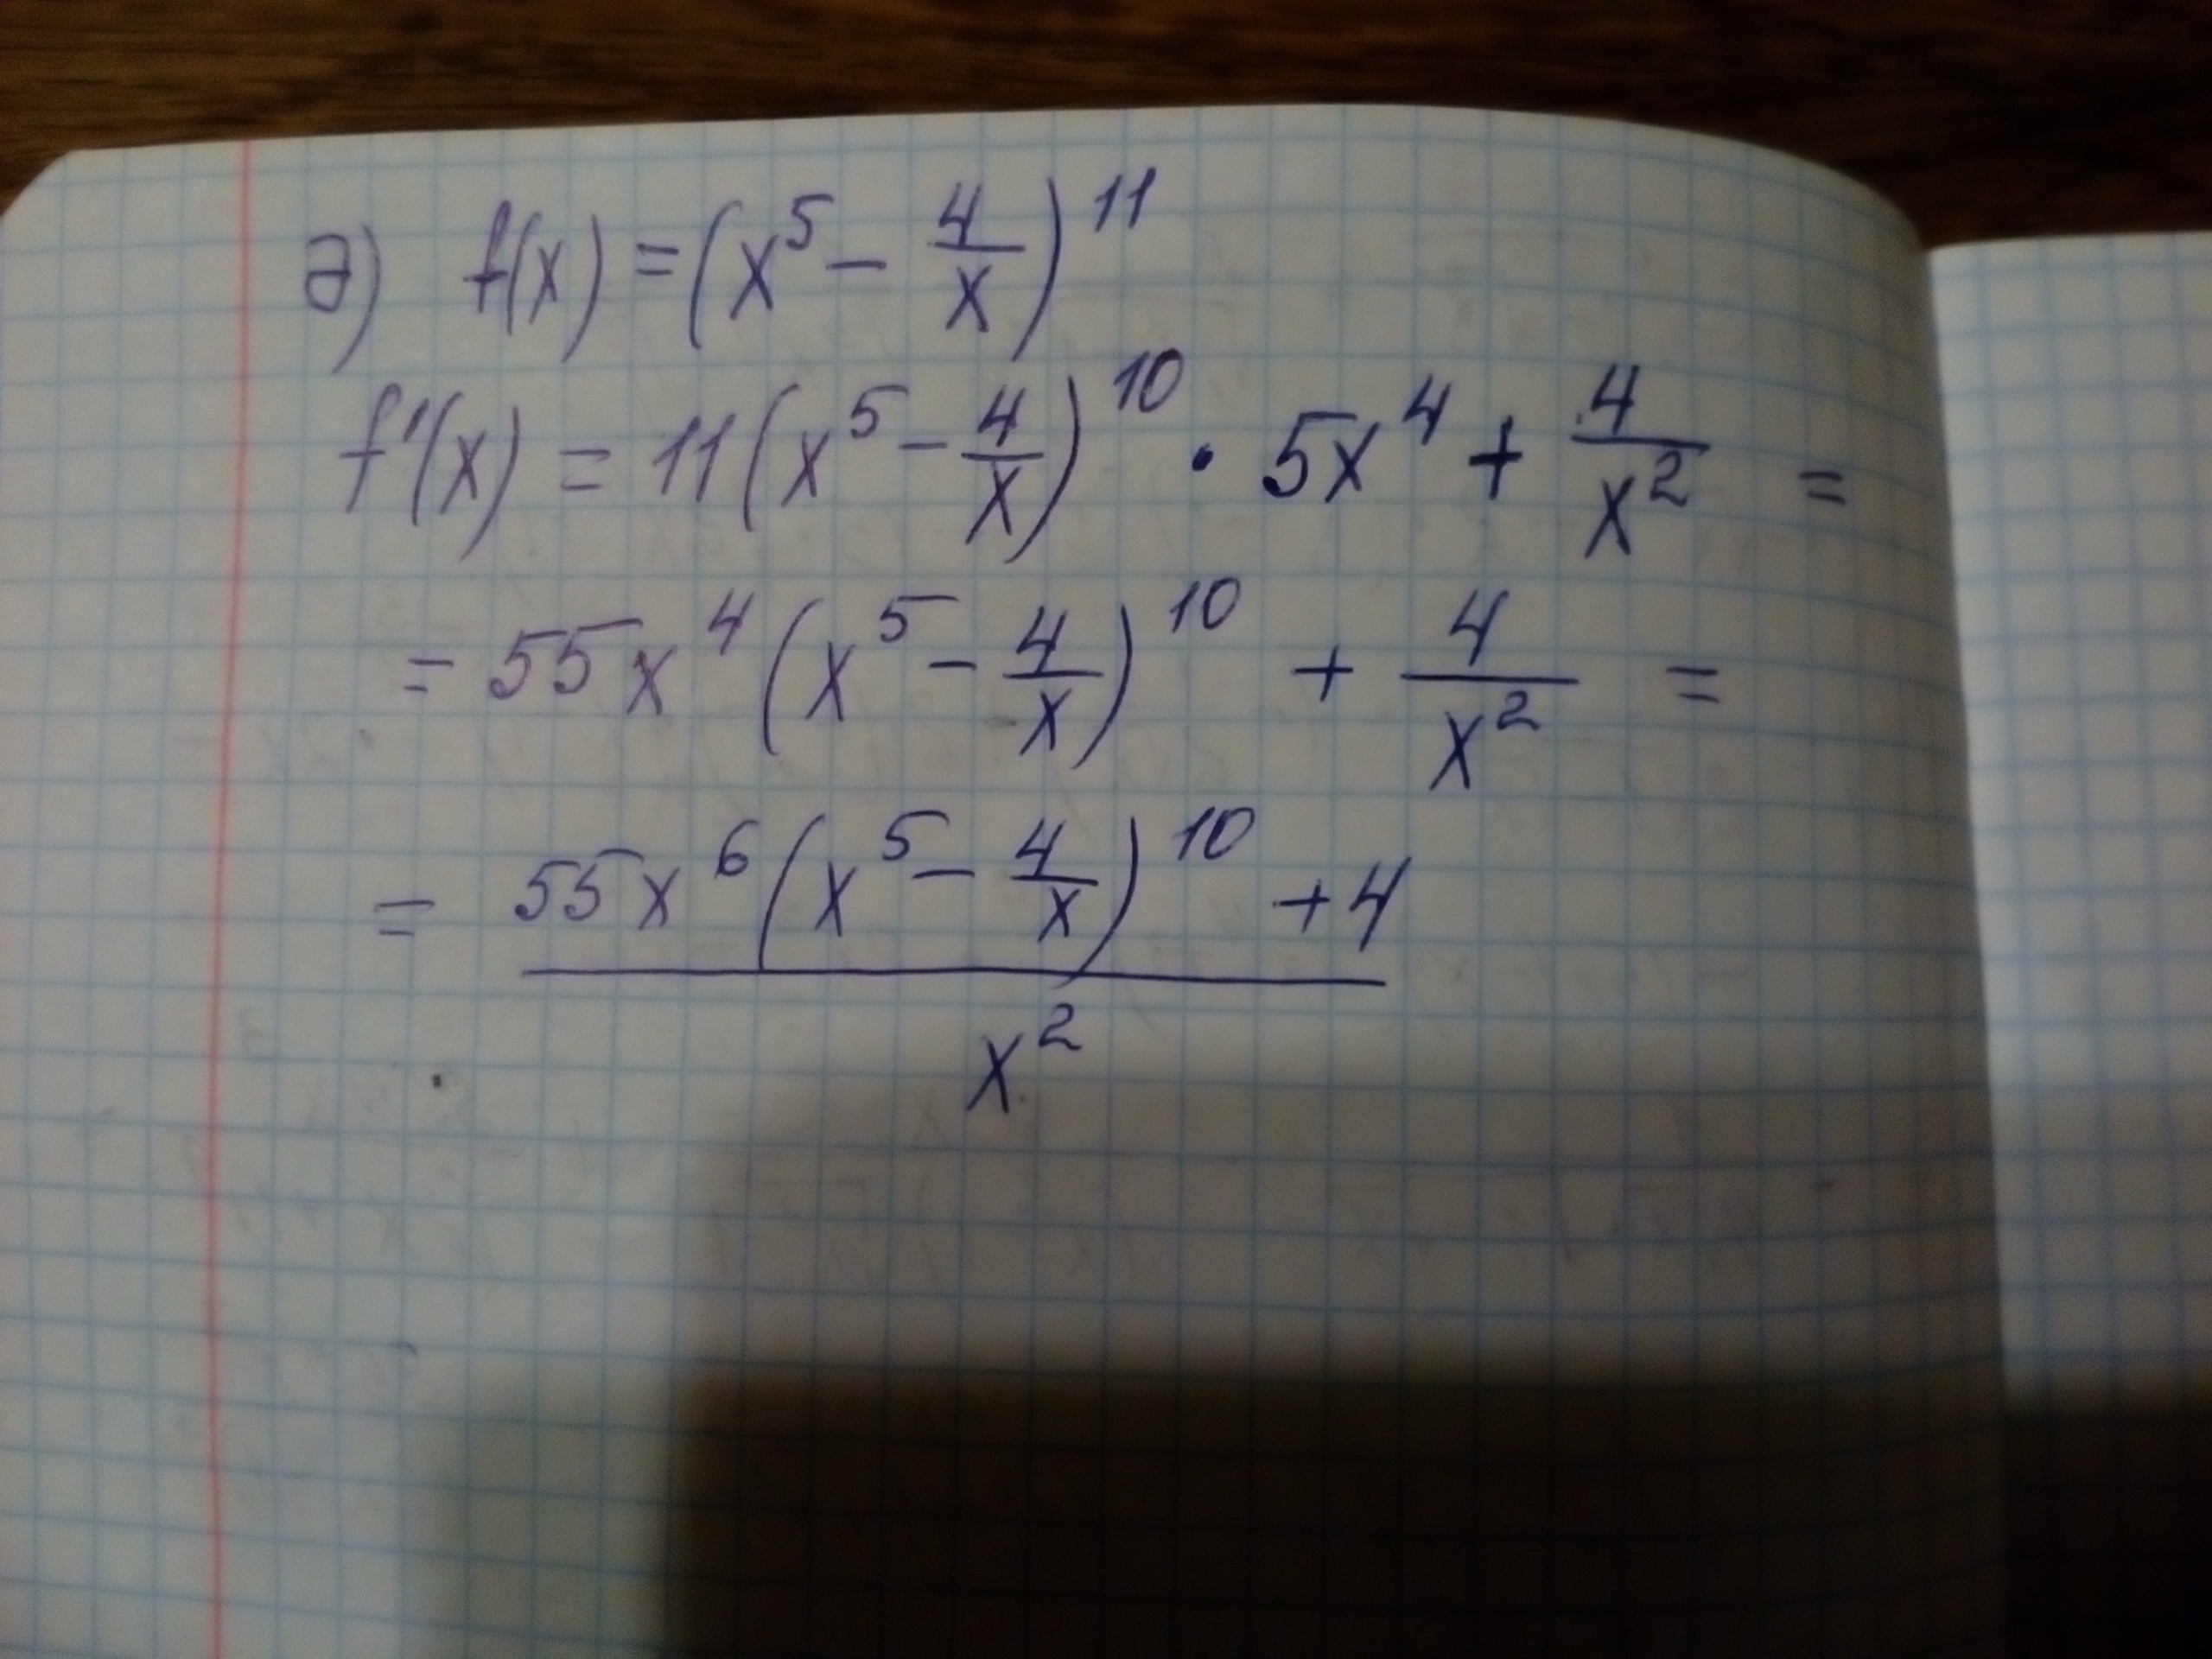 д) f(x) = (x⁵ - 4/x)¹¹
f'(x) = 11(x⁵ - 4/x)¹⁰ · 5x⁴ + 4/x² =
= 55x⁴(x⁵ - 4/x)¹⁰ + 4/x² =
= (55x⁶(x⁵ - 4/x)¹⁰ + 4)/x²